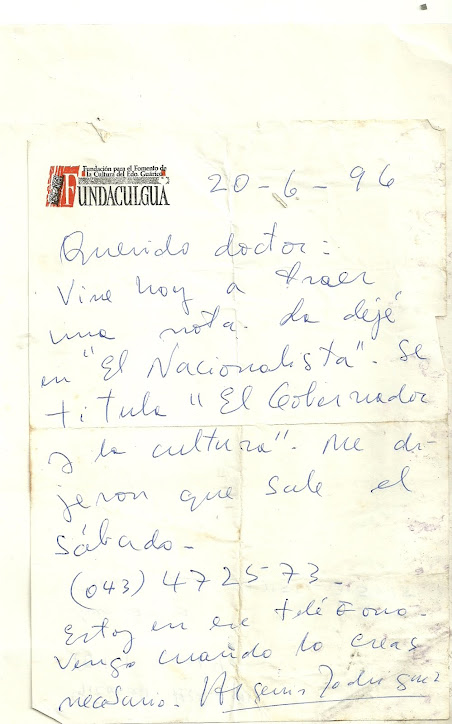 Fundación para el Fomento de
la Cultura del Edo. Guárico
FUNDACULGUA
20-6-96
Querido doctor:
Vine hoy a traer
una nota. La dejé
en "El Nacionalista". Se
titula "El Gobernador
y la cultura". Me di-
jeron que sale el
sábado-
(043) 472573-
Estoy en ese teléfono-
Vengo cuando lo creas
necesario. Argenis Rodríguez